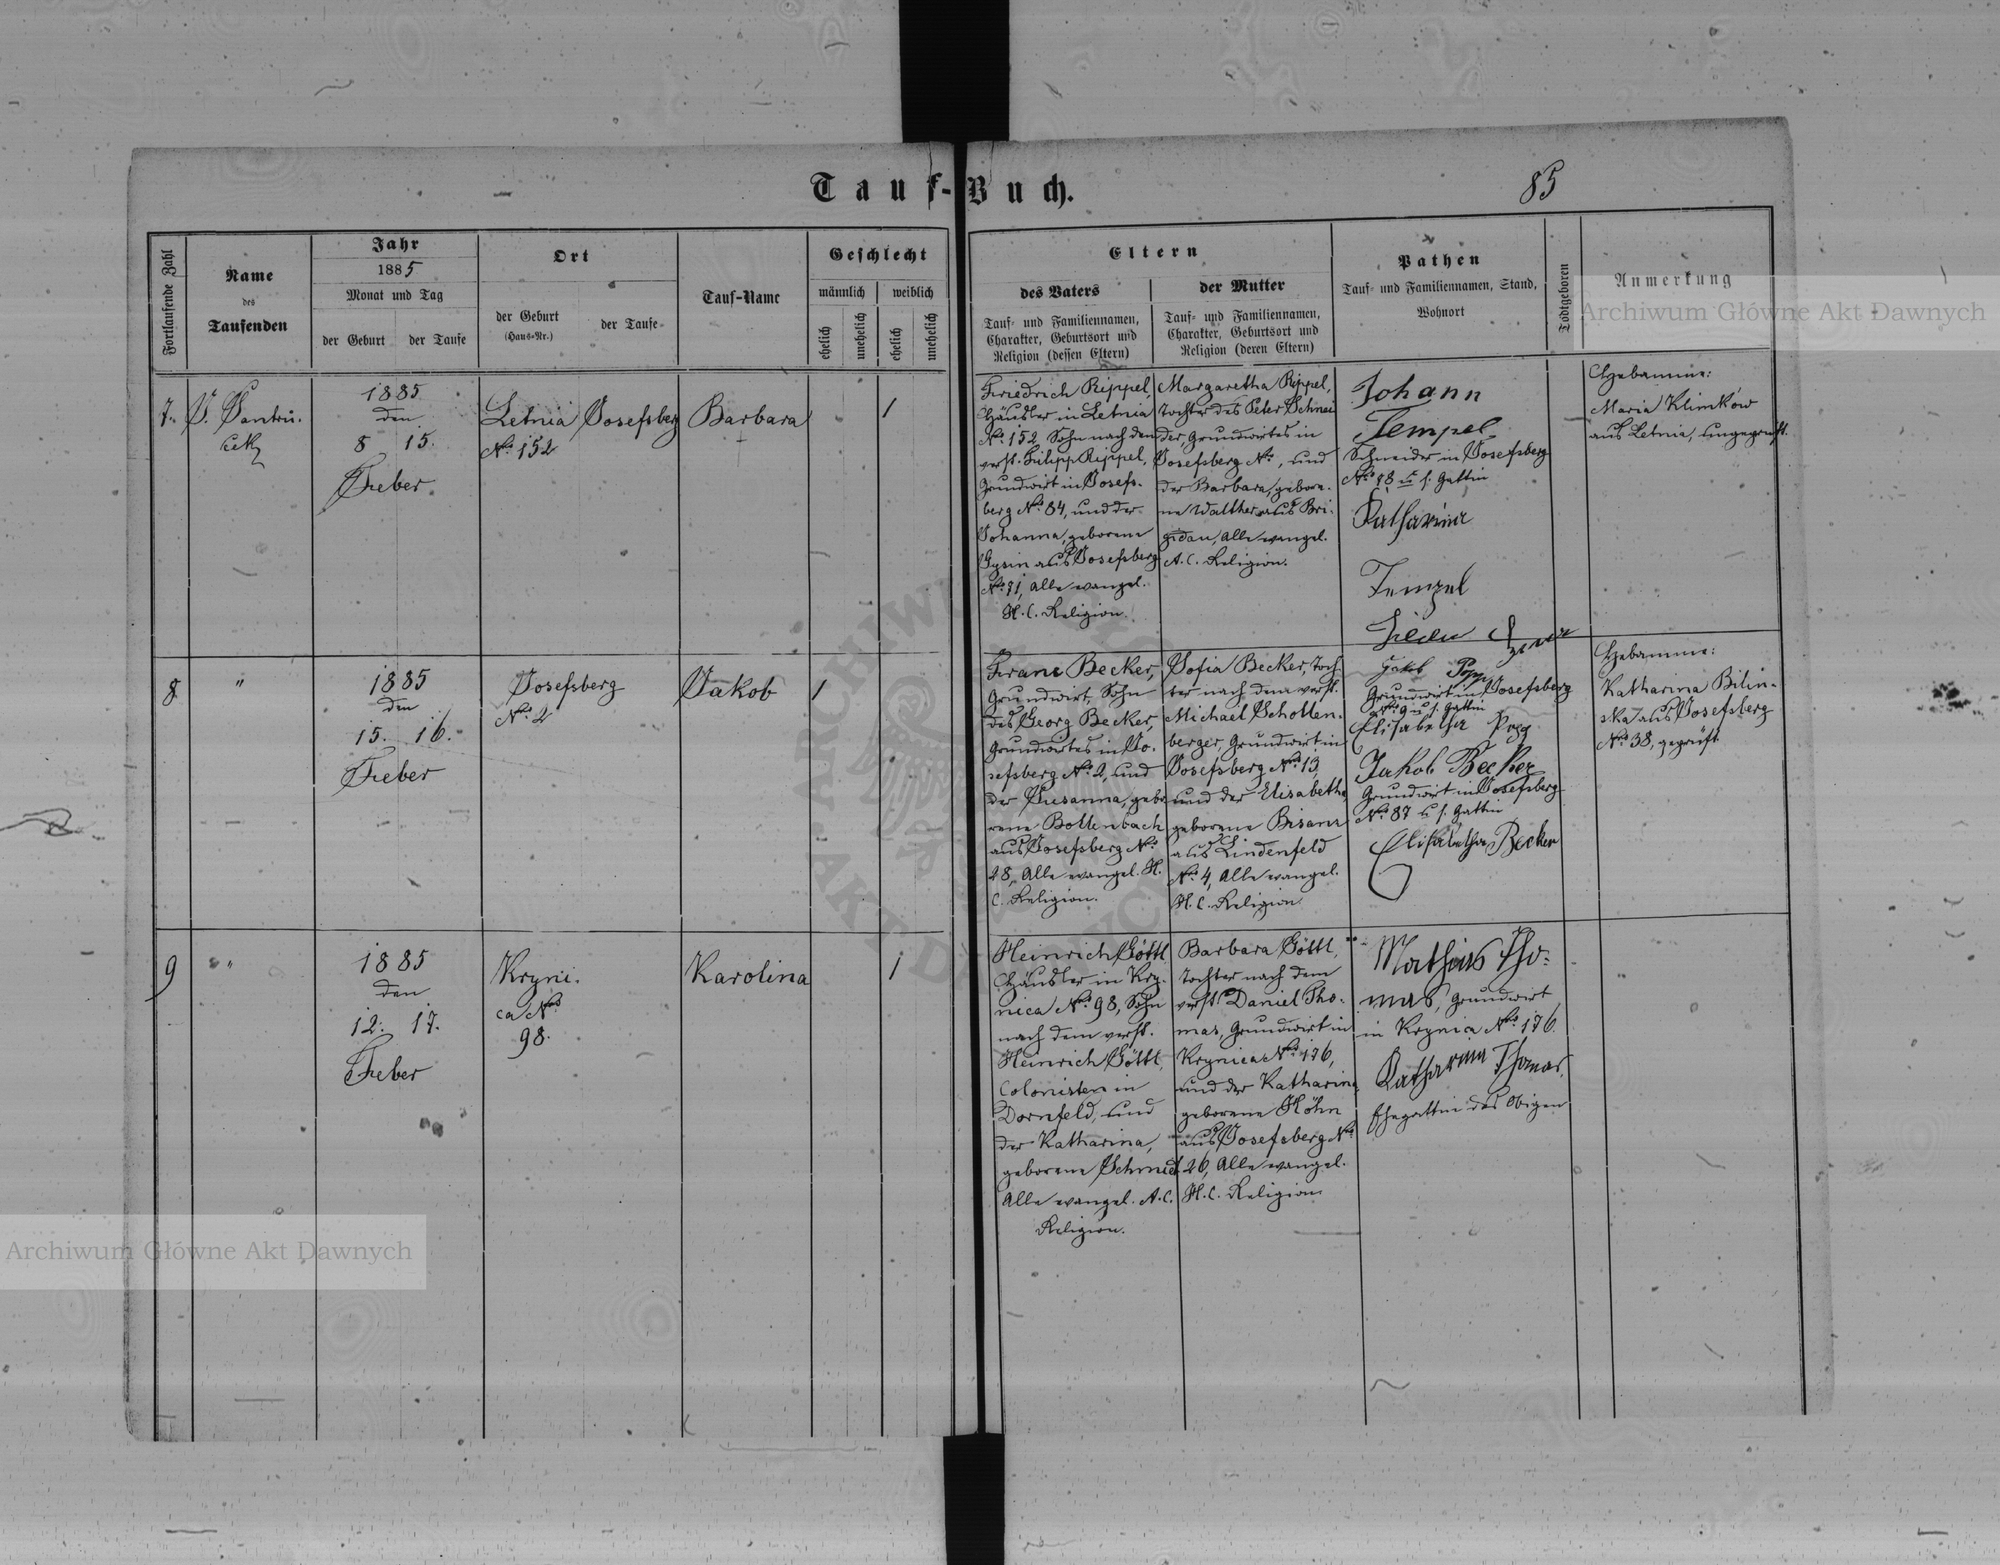 Tauf-Buch.
85
Fortlaufende Zahl
Name
des
Taufenden
Jahr
1885
Monat und Tag
der Geburt
der Taufe
Ort
der Geburt
(Haus-Nr.)
der Taufe
Tauf-Name
Geschlecht
männlich
weiblich
ehelich
unehelich
ehelich
unehelich
Eltern
des Vaters
Tauf- und Familiennamen,
Charakter, Geburtsort und
Religion (dessen Eltern)
der Mutter
Tauf- und Familiennamen,
Charakter, Geburtsort und
Religion (deren Eltern)
Pathen
Tauf- und Familiennamen, Stand,
Wohnort
Todtgeboren
Anmerkung
7.
1885
den
8 15.
Feber
Letnia
No. 152
Josefsberg
Barbara
1
Friedrich Rippel,
Häusler in Letnia
No. 152, Sohn nach dem
verst. Filipp Rippel,
Grundwirt in Josefs-
berg No. 84, und der
Johanna, geborene
Gysin aus Josefsberg
No. 71, Alle evangel.
H. C. Religion.
Margaretha Rippel,
Tochter des Peter Schnei
der, Grundwirtes in
Josefsberg No. , und
der Barbara, gebore-
ne Walther aus Bri-
gidau, Alle evangel.
A. C. Religion.
Johann
Tempel
Schneider in Josefsberg
No. 88 u. s. Gattin
Katharina
Tempel
Hebamme:
Maria Klimków
aus Letnia, ungeprüft.
8
"
1885
den
15. 16.
Feber
Josefsberg
No. 2
Jakob
1
Franz Becker,
Grundwirt, Sohn
des Georg Becker,
Grundwirtes in Jo-
sefsberg No. 2, und
der Susanna, gebo
rene Bollenbach
aus Josefsberg No.
28, Alle evangel. H.
C. Religion.
Sofia Becker, Toch
ter nach dem verst.
Michael Schollen-
berger, Grundwirt in
Josefsberg No. 13,
und der Elisabetha
geborene Bisanz
aus Lindenfeld
No. 4, Alle evangel.
H. C. Religion
Jakob
Grundwirt in Josefsberg
No. 9 u. s. Gattin
Elisabetha
Jakob Becker
Grundwirt in Josefsberg
No. 87 u. s. Gattin
Elisabetha Becker
Hebamme:
Katharina Bilin-
ska aus Josefsberg
No. 38, geprüft.
9
"
1885
den
12. 17.
Feber
Kryni-
ca No.
98.
Karolina
1
Heinrich Göttl
Häusler in Kry-
nica No. 98, Sohn
nach dem verst.
Heinrich Göttl,
Colonisten in
Dornfeld, und
der Katharina,
geborene Schmid
Alle evangel. A. C.
Religion.
Barbara Göttl,
Tochter nach dem
verst. Daniel Tho-
mas, Grundwirt in
Krynica No. 176,
und der Katharina
geborene Höhn
aus Josefsberg No.
26, Alle evangel.
H. C. Religion
Mathias Tho-
mas, Grundwirt
in Krynica No. 176.
Katharina Thomas,
Ehegattin des Obigen
Archiwum Główne Akt Dawnych
Archiwum Główne Akt Dawnych